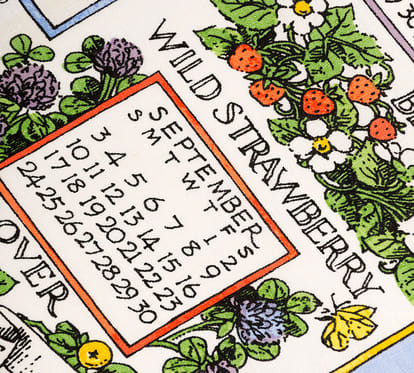 WILD STRAWBERRY
SEPTEMBER
S M T W T F S
1 2
3 4 5 6 7 8 9
10 11 12 13 14 15 16
17 18 19 20 21 22 23
24 25 26 27 28 29 30
OVER